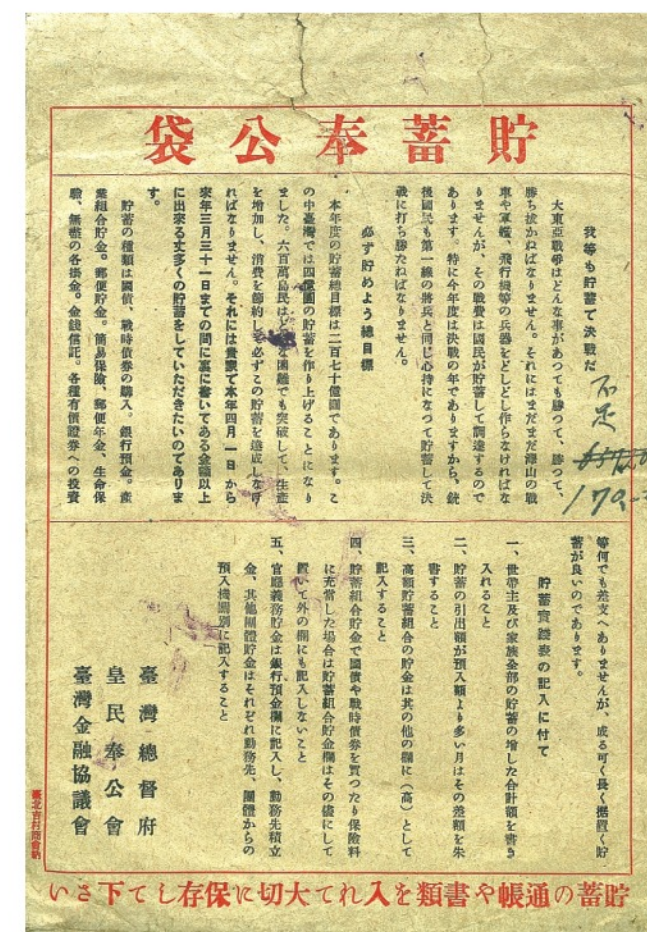 貯蓄奉公袋
我等も貯蓄で決戰だ
大東亞戰爭はどんな事があつても勝つて、勝つて、
勝ち拔かねばなりません。それにはまだまだ澤山の戰
車や軍艦、飛行機等の兵器をどしどし作らなければな
りませんが、その戰費は國民が貯蓄して調達するので
あります。特に今年度は決戰の年でありますから、銃
後國民も第一線の將兵と同じ心持になつて貯蓄して決
戰に打ち勝たねばなりません。
必ず貯めよう總目標
本年度の貯蓄總目標は二百七十億圓であります。こ
の中臺灣では四億圓の貯蓄を作り上げることになり
ました。六百萬島民はどんな困難でも突破して、生產
を增加し、消費を節約して必ずこの貯蓄を達成しなけ
ればなりません。それには貴家で本年四月一日から
來年三月三十一日までの間に裏に書いてある金額以上
に出來る丈多くの貯蓄をしていただきたいのでありま
す。
貯蓄の種類は國債、戰時債券の購入。銀行預金。產
業組合貯金。郵便貯金。簡易保險、郵便年金、生命保
險、無盡の各掛金。金錢信託。各種有價證券への投資
不足
170
等何でも差支へありませんが、成る可く長く据置く貯
蓄が良いのであります。
貯蓄實踐表の記入に付て
一、世帶主及び家族全部の貯蓄の增した合計額を書き
入れること
二、貯蓄の引出額が預入額より多い月はその差額を朱
書すること
三、高額貯蓄組合の貯金は其の他の欄に（高）として
記入すること
四、貯蓄組合貯金で國債や戰時債券を買つたり保險料
に充當した場合は貯蓄組合貯金欄はその儘にして
置いて外の欄にも記入しないこと
五、官廳義務貯金は銀行預金欄に記入し、勤務先積立
金、其他團體貯金はそれぞれ勤務先、團體からの
預入機關別に記入すること
臺灣總督府
皇民奉公會
臺灣金融協議會
臺北吉村商會納
貯蓄の通帳や書類を入れて大切に保存して下さい